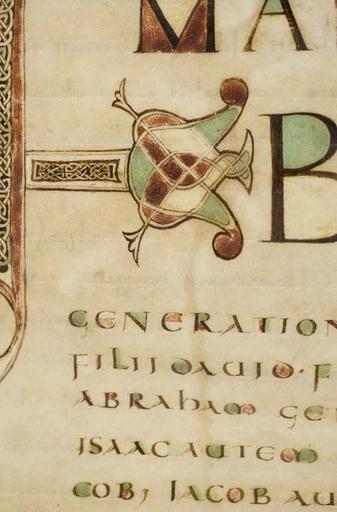 MA
B
GENERATION
FILII DAUID· F
ABRAHAM GE
ISAAC AUTEM
COB; IACOB AU